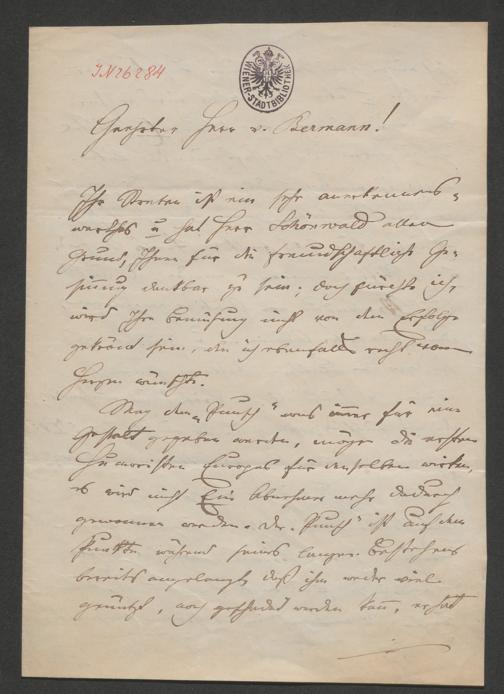 IN 26284
WIENER-STADTBIBLIOTHEK
Geehrter Herr v. Bermann!
Ihr Streben ist ein sehr anerkennens-
werthes u hat Herr Schönwald allen
Grund, Ihnen für die freundschaftliche Ge-
sinnung dankbar zu sein; doch fürchte ich,
wird Ihre Bemühung nicht von dem Erfolge
gekrönt sein, den ich ebenfalls recht vom
Herzen wünsche.
Mag dem „Punsch" was immer für eine
Gestalt gegeben werden, mögen die ersten
Humoristen Europas für denselben wirken,
es wird nicht Ein Abnehmer mehr dadurch
gewonnen werden. Der „Punsch" ist auf dem
Punkte während seines langen Bestehens
bereits angelangt, daß ihm weder viel
genützt, noch geschadet werden kann, er hat